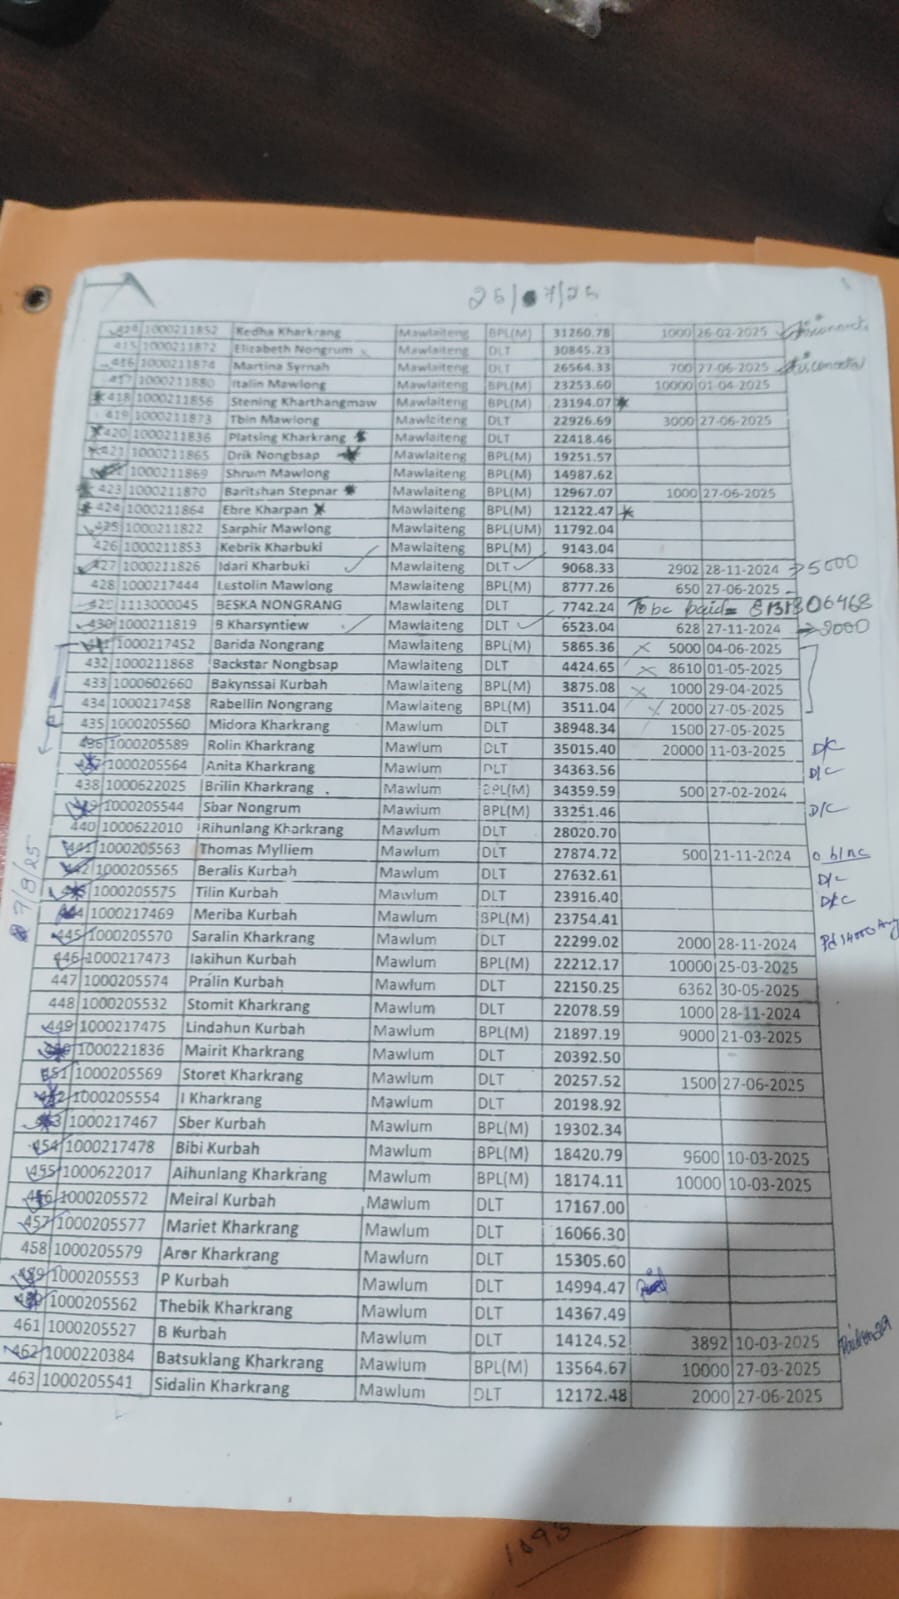 25/07/25
1000211852 Kedha Kharkrang Mawlaiteng BPL(M) 31260.78 1000 26-02-2025
415 1000211872 Elizabeth Nongrum Mawlaiteng DLT 30845.23
416 1000211874 Martina Syrnah Mawlaiteng DLT 26564.33 700 27-06-2025
417 1000211880 Italin Mawlong Mawlaiteng BPL(M) 23253.60 10000 01-04-2025
418 1000211856 Stening Kharthangmaw Mawlaiteng BPL(M) 23194.07
419 1000211873 Tbin Mawlong Mawlaiteng DLT 22926.69 3000 27-06-2025
420 1000211836 Platsing Kharkrang Mawlaiteng DLT 22418.46
421 1000211865 Drik Nongbsap Mawlaiteng BPL(M) 19251.57
1000211869 Shrum Mawlong Mawlaiteng BPL(M) 14987.62
423 1000211870 Baritshan Stepnar Mawlaiteng BPL(M) 12967.07 1000 27-06-2025
424 1000211864 Ebre Kharpan Mawlaiteng BPL(M) 12122.47
425 1000211822 Sarphir Mawlong Mawlaiteng BPL(UM) 11792.04
426 1000211853 Kebrik Kharbuki Mawlaiteng BPL(M) 9143.04
427 1000211826 Idari Kharbuki Mawlaiteng DLT 9068.33 2902 28-11-2024 → 5000
428 1000217444 Lestolin Mawlong Mawlaiteng BPL(M) 8777.26 650 27-06-2025
429 1113000045 BESKA NONGRANG Mawlaiteng DLT 7742.24 To be paid
430 1000211819 B Kharsyntiew Mawlaiteng DLT 6523.04 628 27-11-2024 → 3000
1000217452 Barida Nongrang Mawlaiteng BPL(M) 5865.36 5000 04-06-2025
432 1000211868 Backstar Nongbsap Mawlaiteng DLT 4424.65 8610 01-05-2025
433 1000602660 Bakynssai Kurbah Mawlaiteng BPL(M) 3875.08 1000 29-04-2025
434 1000217458 Rabellin Nongrang Mawlaiteng BPL(M) 3511.04 2000 27-05-2025
435 1000205560 Midora Kharkrang Mawlum DLT 38948.34 1500 27-05-2025
436 1000205589 Rolin Kharkrang Mawlum DLT 35015.40 20000 11-03-2025 D/C
1000205564 Anita Kharkrang Mawlum DLT 34363.56 D/C
438 1000622025 Brilin Kharkrang Mawlum BPL(M) 34359.59 500 27-02-2024
1000205544 Sbar Nongrum Mawlum BPL(M) 33251.46 D/C
440 1000622010 Rihunlang Kharkrang Mawlum DLT 28020.70
441 1000205563 Thomas Mylliem Mawlum DLT 27874.72 500 21-11-2024
442 1000205565 Beralis Kurbah Mawlum DLT 27632.61 D/C
1000205575 Tilin Kurbah Mawlum DLT 23916.40 D/C
444 1000217469 Meriba Kurbah Mawlum BPL(M) 23754.41
445 1000205570 Saralin Kharkrang Mawlum DLT 22299.02 2000 28-11-2024
446 1000217473 Iakihun Kurbah Mawlum BPL(M) 22212.17 10000 25-03-2025
447 1000205574 Pralin Kurbah Mawlum DLT 22150.25 6362 30-05-2025
448 1000205532 Stomit Kharkrang Mawlum DLT 22078.59 1000 28-11-2024
449 1000217475 Lindahun Kurbah Mawlum BPL(M) 21897.19 9000 21-03-2025
1000221836 Mairit Kharkrang Mawlum DLT 20392.50
451 1000205569 Storet Kharkrang Mawlum DLT 20257.52 1500 27-06-2025
452 1000205554 I Kharkrang Mawlum DLT 20198.92
1000217467 Sber Kurbah Mawlum BPL(M) 19302.34
454 1000217478 Bibi Kurbah Mawlum BPL(M) 18420.79 9600 10-03-2025
455 1000622017 Aihunlang Kharkrang Mawlum BPL(M) 18174.11 10000 10-03-2025
456 1000205572 Meiral Kurbah Mawlum DLT 17167.00
457 1000205577 Mariet Kharkrang Mawlum DLT 16066.30
458 1000205579 Aror Kharkrang Mawlum DLT 15305.60
459 1000205553 P Kurbah Mawlum DLT 14994.47
1000205562 Thebik Kharkrang Mawlum DLT 14367.49
461 1000205527 B Kurbah Mawlum DLT 14124.52 3892 10-03-2025
462 1000220384 Batsuklang Kharkrang Mawlum BPL(M) 13564.67 10000 27-03-2025
463 1000205541 Sidalin Kharkrang Mawlum DLT 12172.48 2000 27-06-2025
7/8/25